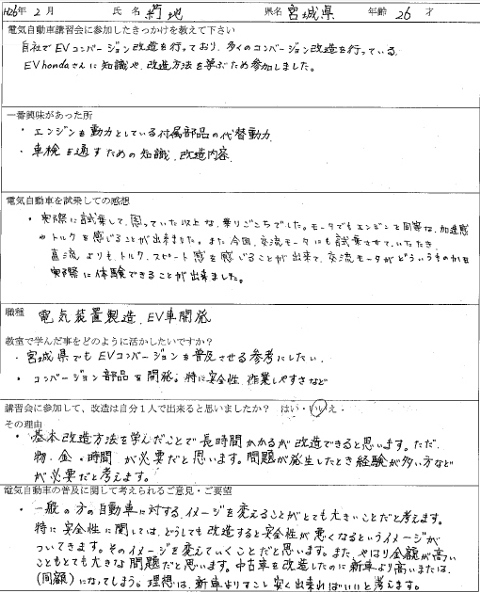 H26年 2月 氏名 菊地 県名 宮城県 年齢 26 才
電気自動車講習会に参加したきっかけを教えて下さい
自社でEVコンバージョン改造を行っており、多くのコンバージョン改造を行っている
EVhondaさんに知識や、改造方法を学ぶため参加しました。
一番興味があった所
・エンジンを動力としている付属部品の代替動力
・車検を通すための知識、改造内容
電気自動車を試乗しての感想
・実際に試乗して、思っていた以上な、乗りごこちでした。モータでもエンジンと同等な、加速感
やトルクを感じることが出来ました。また今回、交流モータにも試乗させていただき
直流よりも、トルク、スピード感を感じることが出来て、交流モータがどういうものかを
実際に体験できることが出来ました。
職種 電気装置製造、EV車開発
教室で学んだ事をどのように活かしたいですか?
・宮城県でもEVコンバージョンを普及させる参考にしたい。
・コンバージョン部品を開発、特に安全性、作業しやすさなど
講習会に参加して、改造は自分1人で出来ると思いましたか? はい・いいえ・
その理由
・基本改造方法を学んだことで長時間かかるが改造できると思います。ただ、
物・金・時間が必要だと思います。問題が発生したとき経験が多い方など
が必要だと考えます。
電気自動車の普及に関して考えられるご意見・ご要望
・一般の方の自動車に対する、イメージを変えることがとても大きいことだと考えます。
特に安全性に関しては、どうしても改造すると安全性が悪くなるというイメージが
ついてきます。そのイメージを変えていくことだと思います。また、やはり金額が高い
こともとても大きな問題だと思います。中古車を改造したのに新車より高いまたは、
(同額)になってしまう。理想は、新車よりすこし安く出来ればいいと考えます。